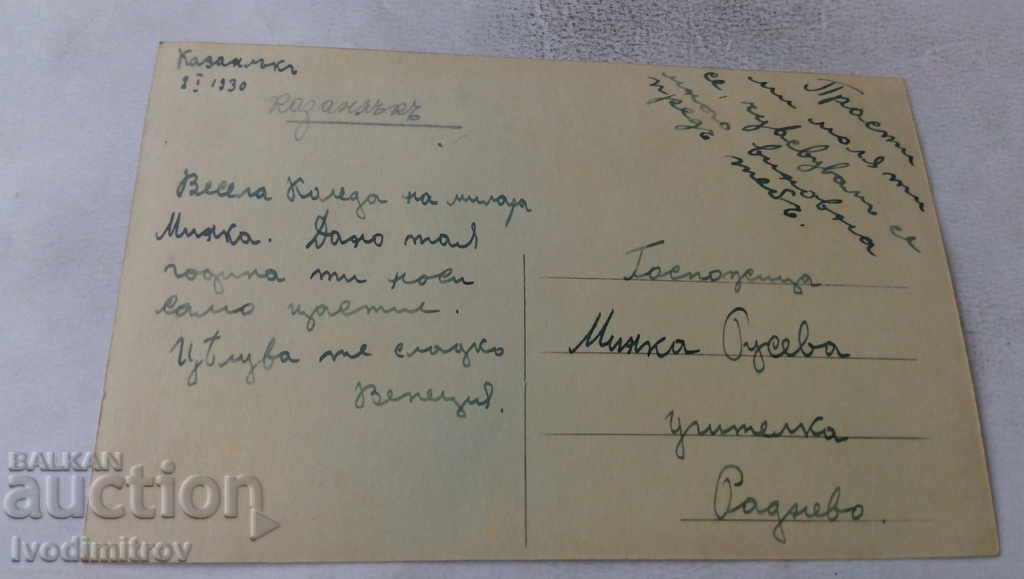 Казанлъкъ
8 I 1930
Казанлъкъ
Весела Коледа на милата
Минка. Дано тая
година ти носи
само щастие.
Цѣлува те сладко
Венеция.
Прости
ми моля ти
се, чувсвувам се
много виновна
предъ тебъ.
Госпожица
Минка Русева
учителка
Раднево.
BALKAN
auction
Ivodimitrov